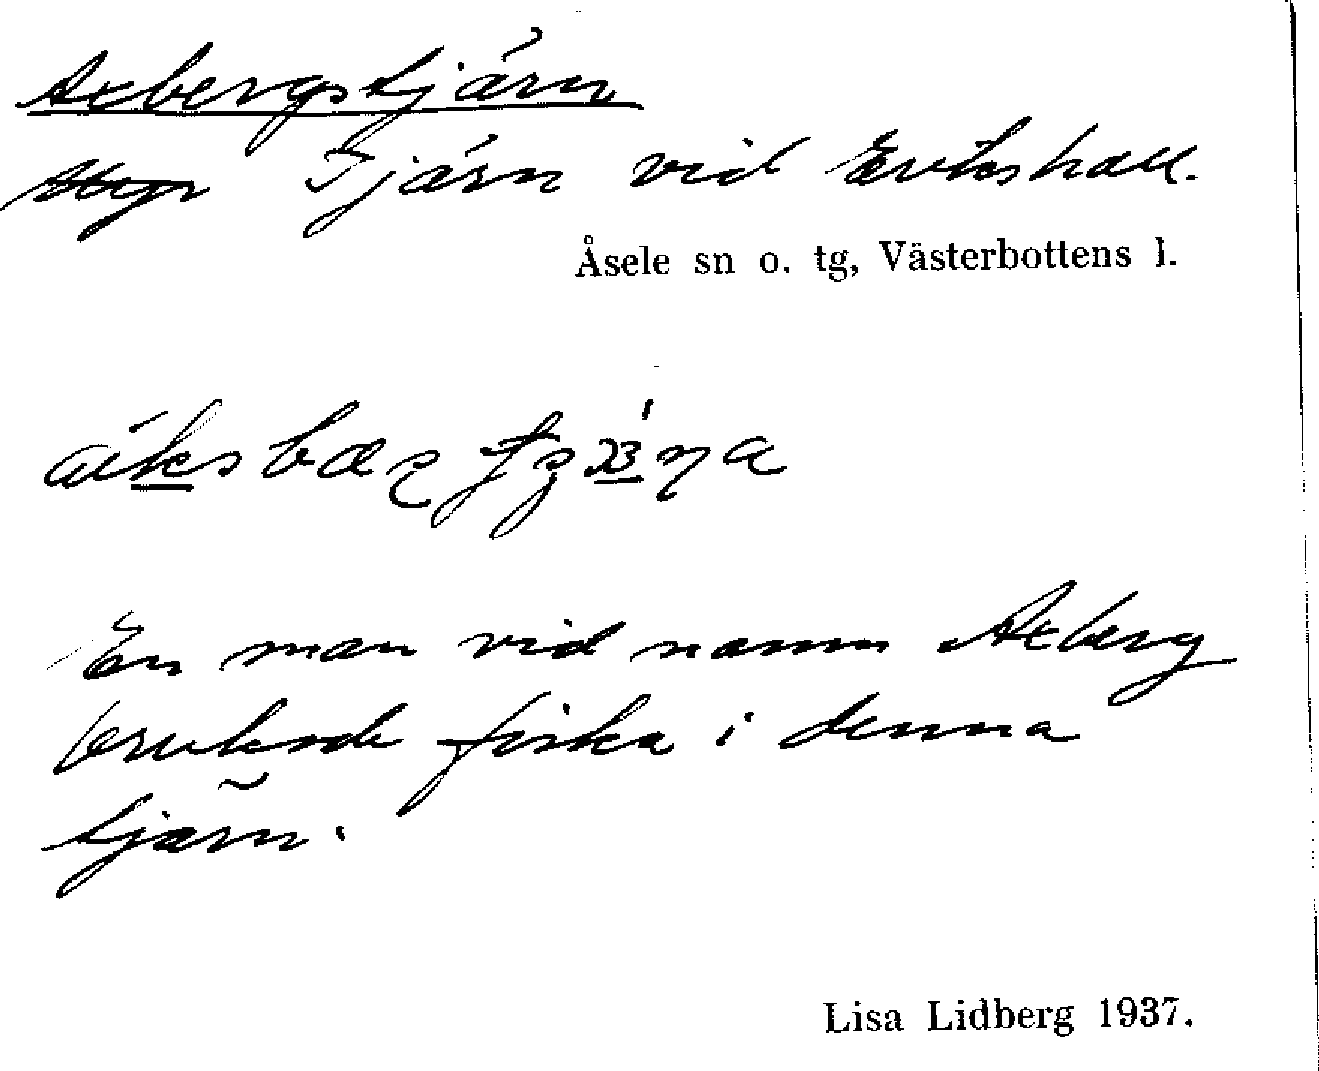 Axbergstjärn
Tjärn vid Erikshall.
Åsele sn o. tg, Västerbottens l.
En man vid namn Axberg
brukade fiska i denna
tjärn.
Lisa Lidberg 1937.